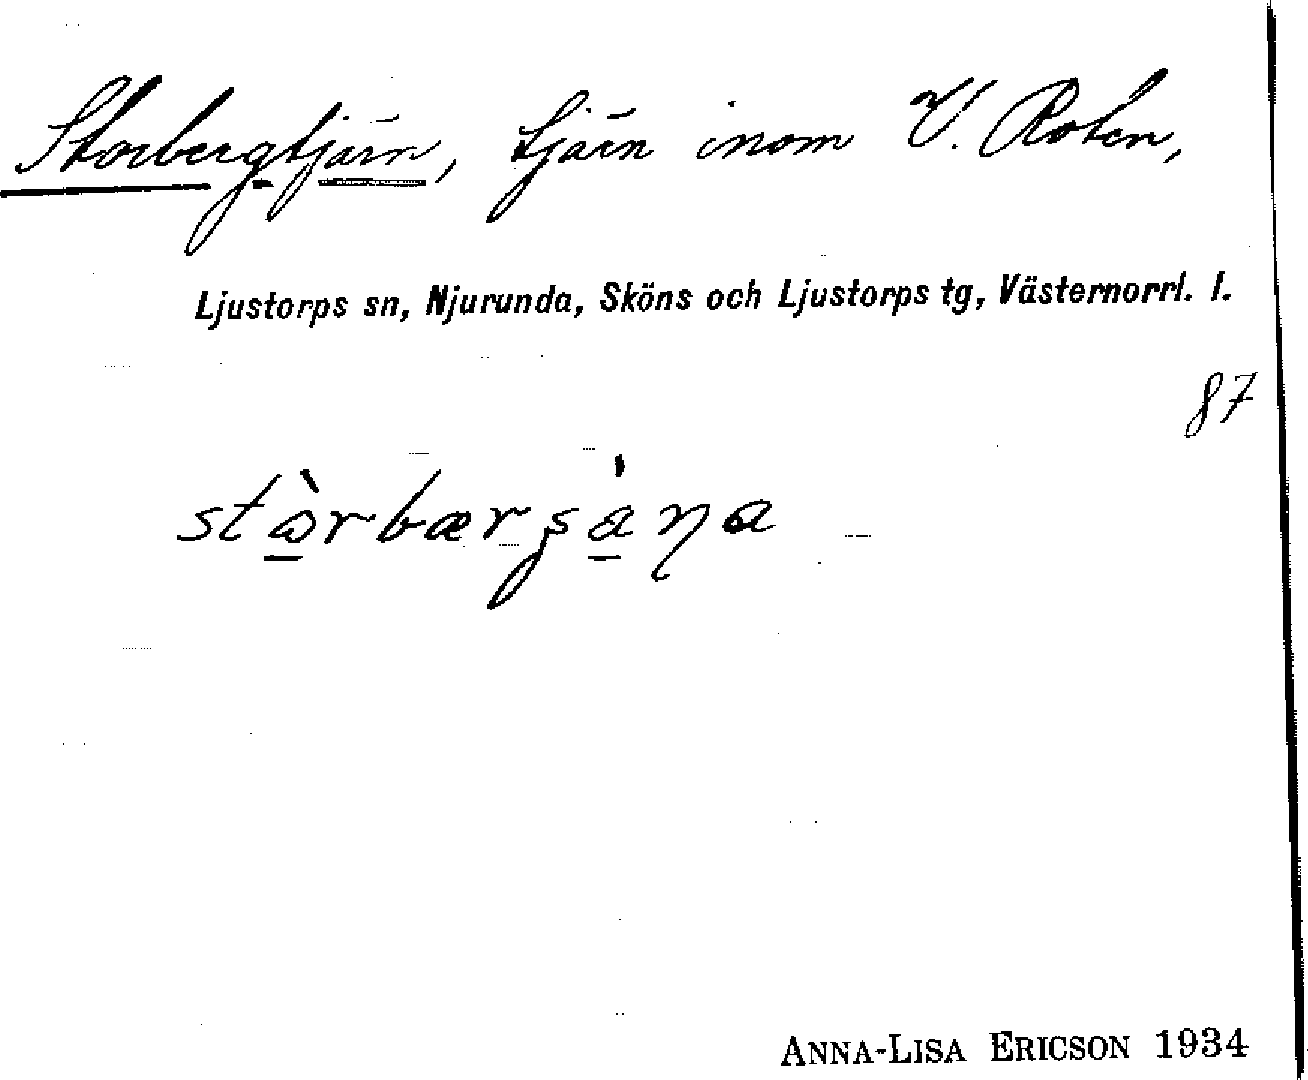 Storbergtjärn, tjärn inom V. Roten,
Ljustorps sn, Njurunda, Sköns och Ljustorps tg, Västernorrl. l.
87
ANNA-LISA ERICSON 1934